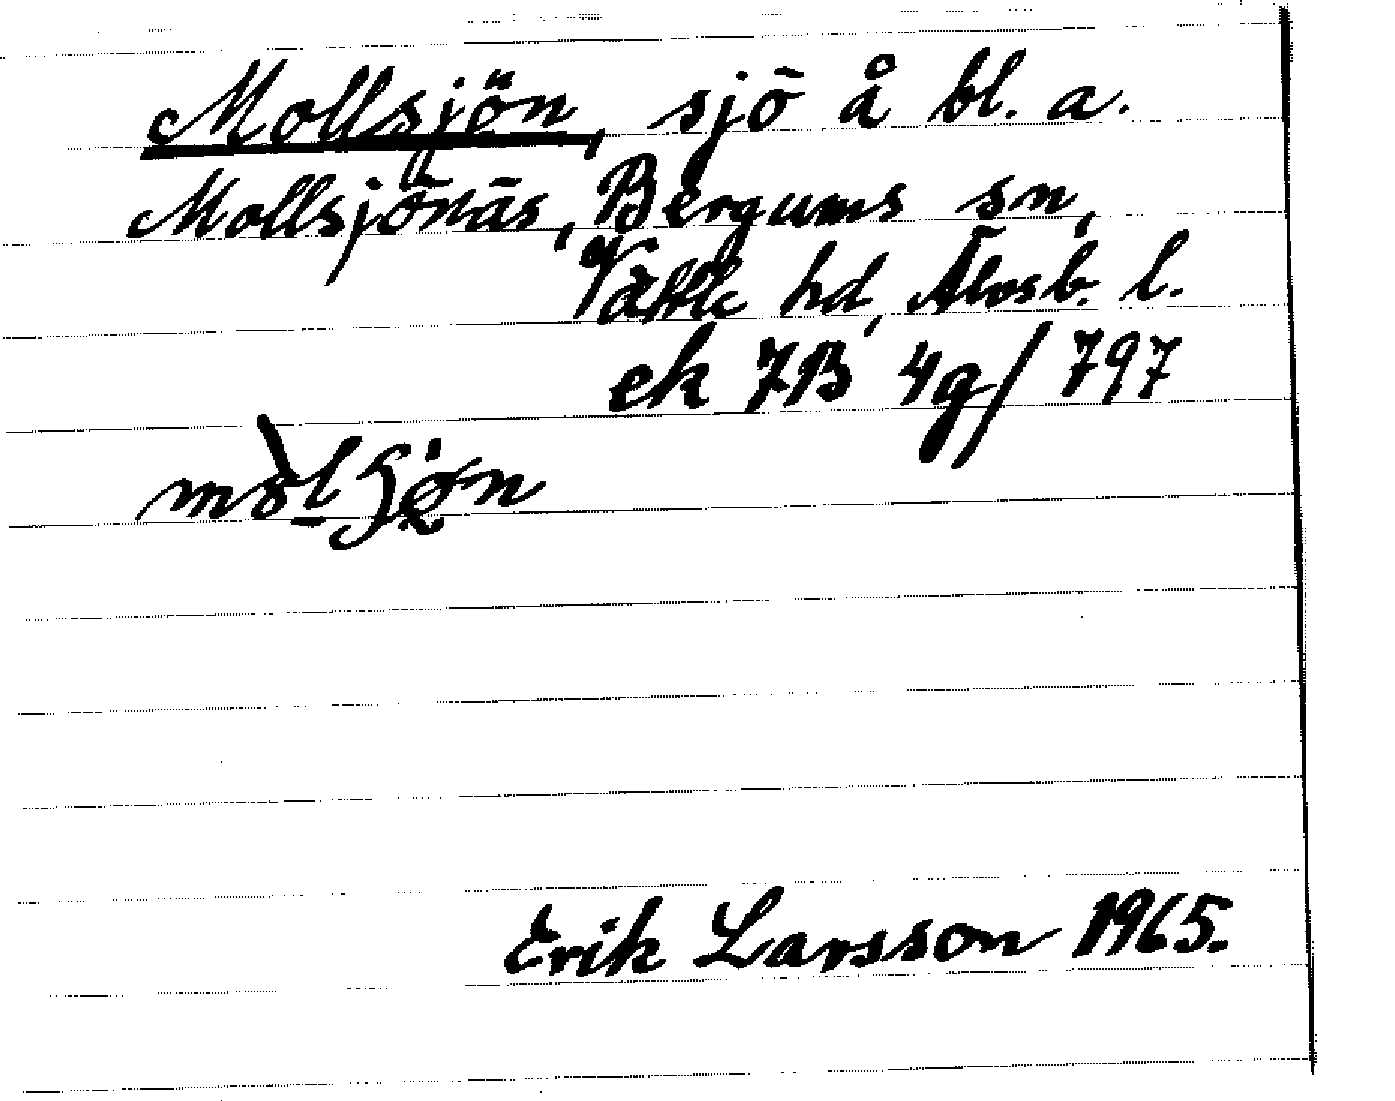 Mollsjön, sjö å bl. a.
Mollsjönäs, Bergums sn,
Vättle hd, Älvsb. l.
ek 7B 4g/797
Erik Larsson 1965.